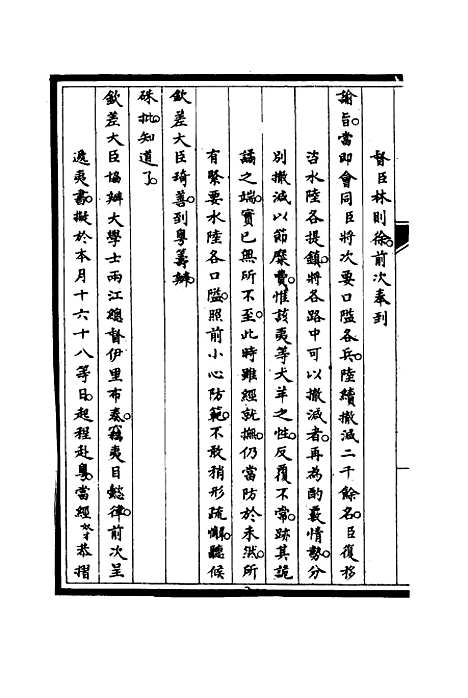 督臣林則徐前次奉到
諭旨當即會同臣將次要口隘各兵陸續撤減二千餘名臣復移
咨水陸各提鎮將各路中可以撤減者再為酌覈情勢分
別撤減以節糜費惟該夷等犬羊之性反覆不常跡其詭
譎之端實已無所不至此時雖經就撫仍當防於未然所
有緊要水陸各口隘照前小心防範不敢稍形疏懈聽候
欽差大臣琦善到粵籌辦
硃批知道了
欽差大臣協辦大學士兩江總督伊里布奏竊夷目懿律前次呈
遞夷書擬於本月十六十八等日起程赴粵當經奴才恭摺